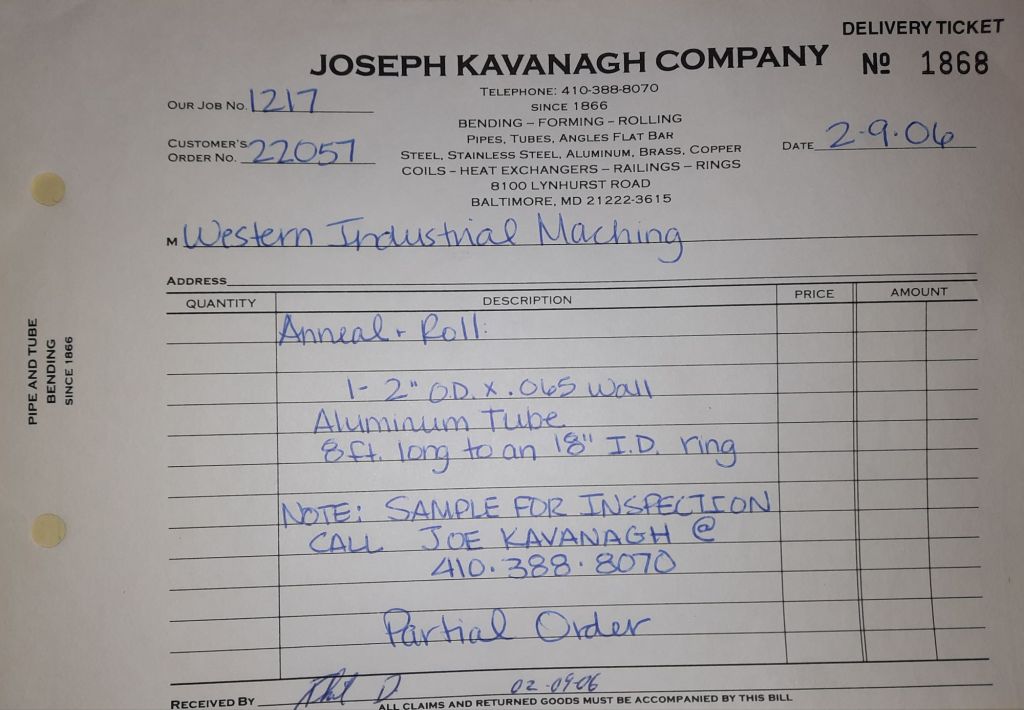 DELIVERY TICKET
JOSEPH KAVANAGH COMPANY
Nº 1868
TELEPHONE: 410-388-8070
SINCE 1866
BENDING – FORMING – ROLLING
PIPES, TUBES, ANGLES FLAT BAR
STEEL, STAINLESS STEEL, ALUMINUM, BRASS, COPPER
COILS – HEAT EXCHANGERS – RAILINGS – RINGS
8100 LYNHURST ROAD
BALTIMORE, MD 21222-3615
OUR JOB NO. 1217
CUSTOMER'S
ORDER NO. 22057
DATE 2-9-06
M Western Industrial Maching
ADDRESS
QUANTITY DESCRIPTION PRICE AMOUNT
Anneal + Roll:
1- 2" O.D. x .065 wall
Aluminum Tube
8ft. long to an 18" I.D. ring
NOTE: SAMPLE FOR INSPECTION
CALL JOE KAVANAGH @
410·388·8070
Partial Order
RECEIVED BY 02-09-06
ALL CLAIMS AND RETURNED GOODS MUST BE ACCOMPANIED BY THIS BILL
PIPE AND TUBE
BENDING
SINCE 1866